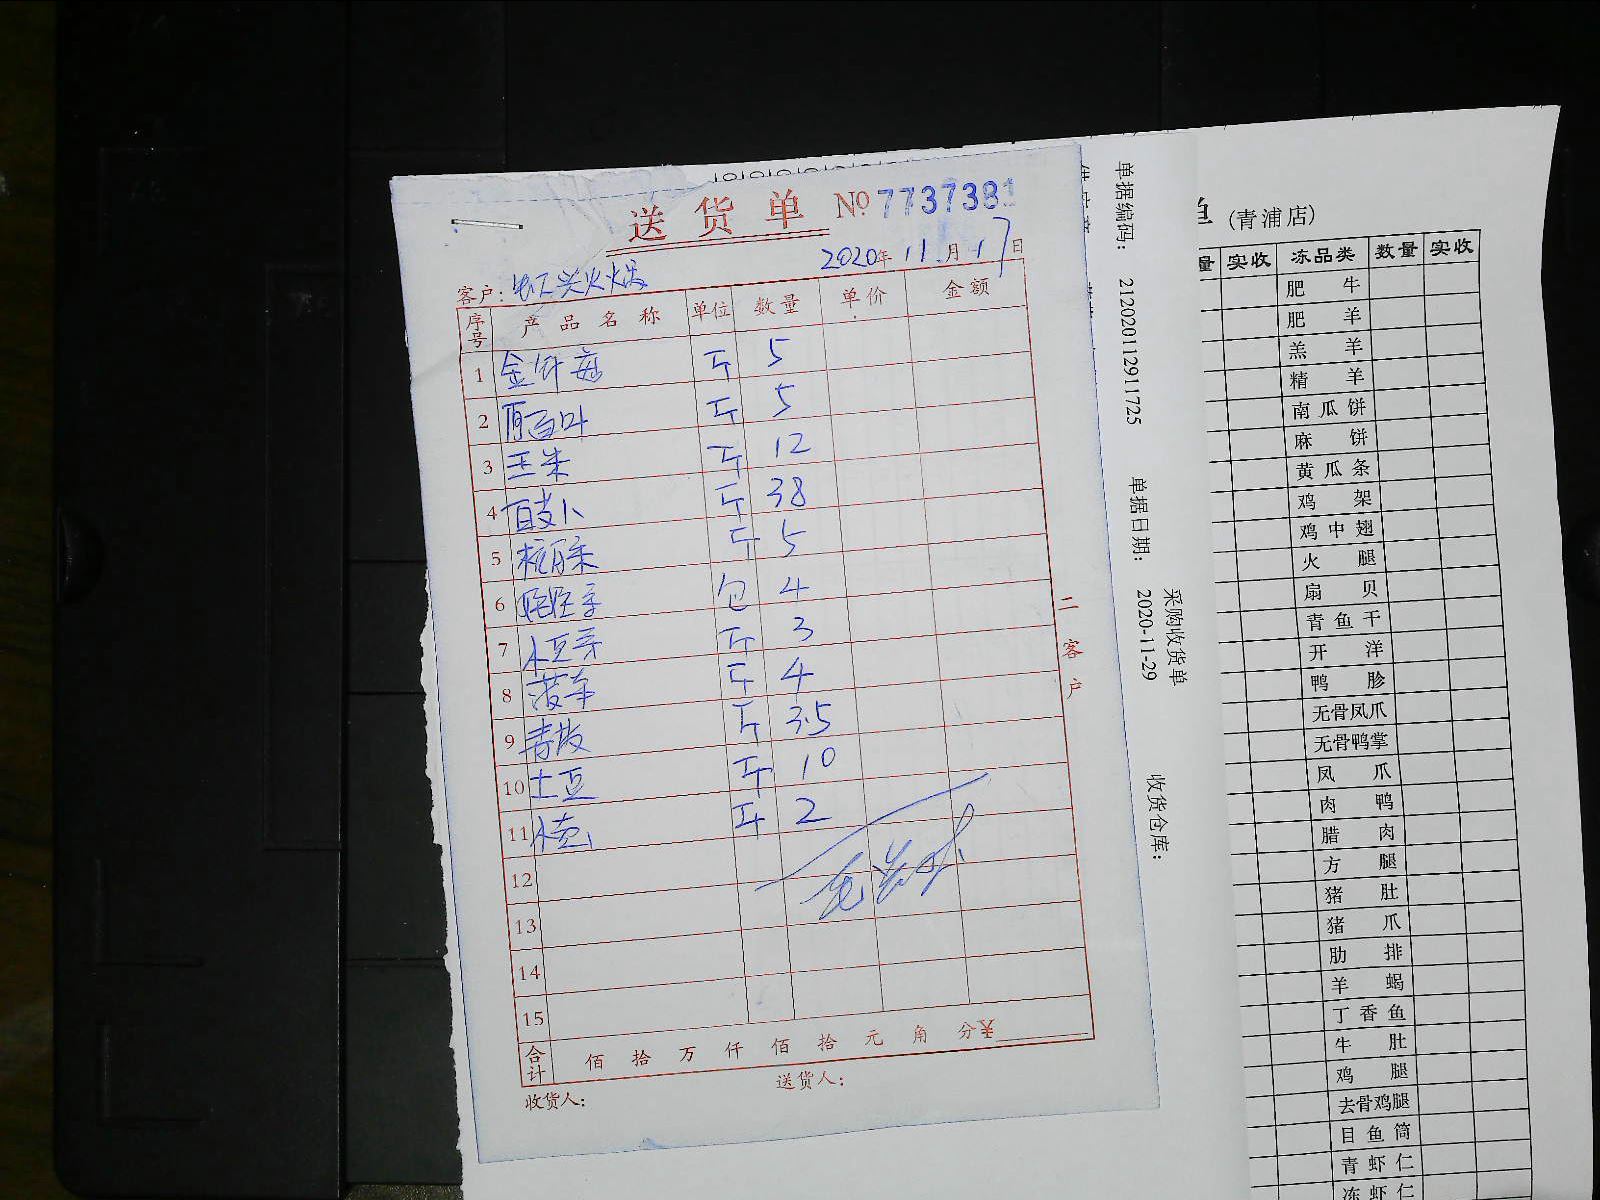 送货单 №7737381
2020年 11月 17日
客户:虹兴火烟
序号 产品名称 单位 数量 单价 金额
1 金针菇 斤 5
2 百叶 斤 5
3 玉米 斤 12
4 白萝卜 斤 38
5 斤 5
6 包 4
7 小豆芽 斤 3
8 菠菜 斤 4
9 青菜 斤 3.5
10 土豆 斤 10
11 小葱 斤 2
12
13
14
15
合计 佰 拾 万 仟 佰 拾 元 角 分 ¥
收货人: 送货人:
二客户
采购收货单
单据编码: 212020112911725 单据日期: 2020-11-29 收货仓库:
单 (青浦店)
量 实收 冻品类 数量 实收
肥牛
肥羊
羔羊
精羊
南瓜饼
麻饼
黄瓜条
鸡架
鸡中翅
火腿
扇贝
青鱼干
开洋
鸭胗
无骨凤爪
无骨鸭掌
凤爪
肉鸭
腊肉
方腿
猪肚
猪爪
肋排
羊蝎
丁香鱼
牛肚
鸡腿
去骨鸡腿
目鱼筒
青虾仁
冻虾仁